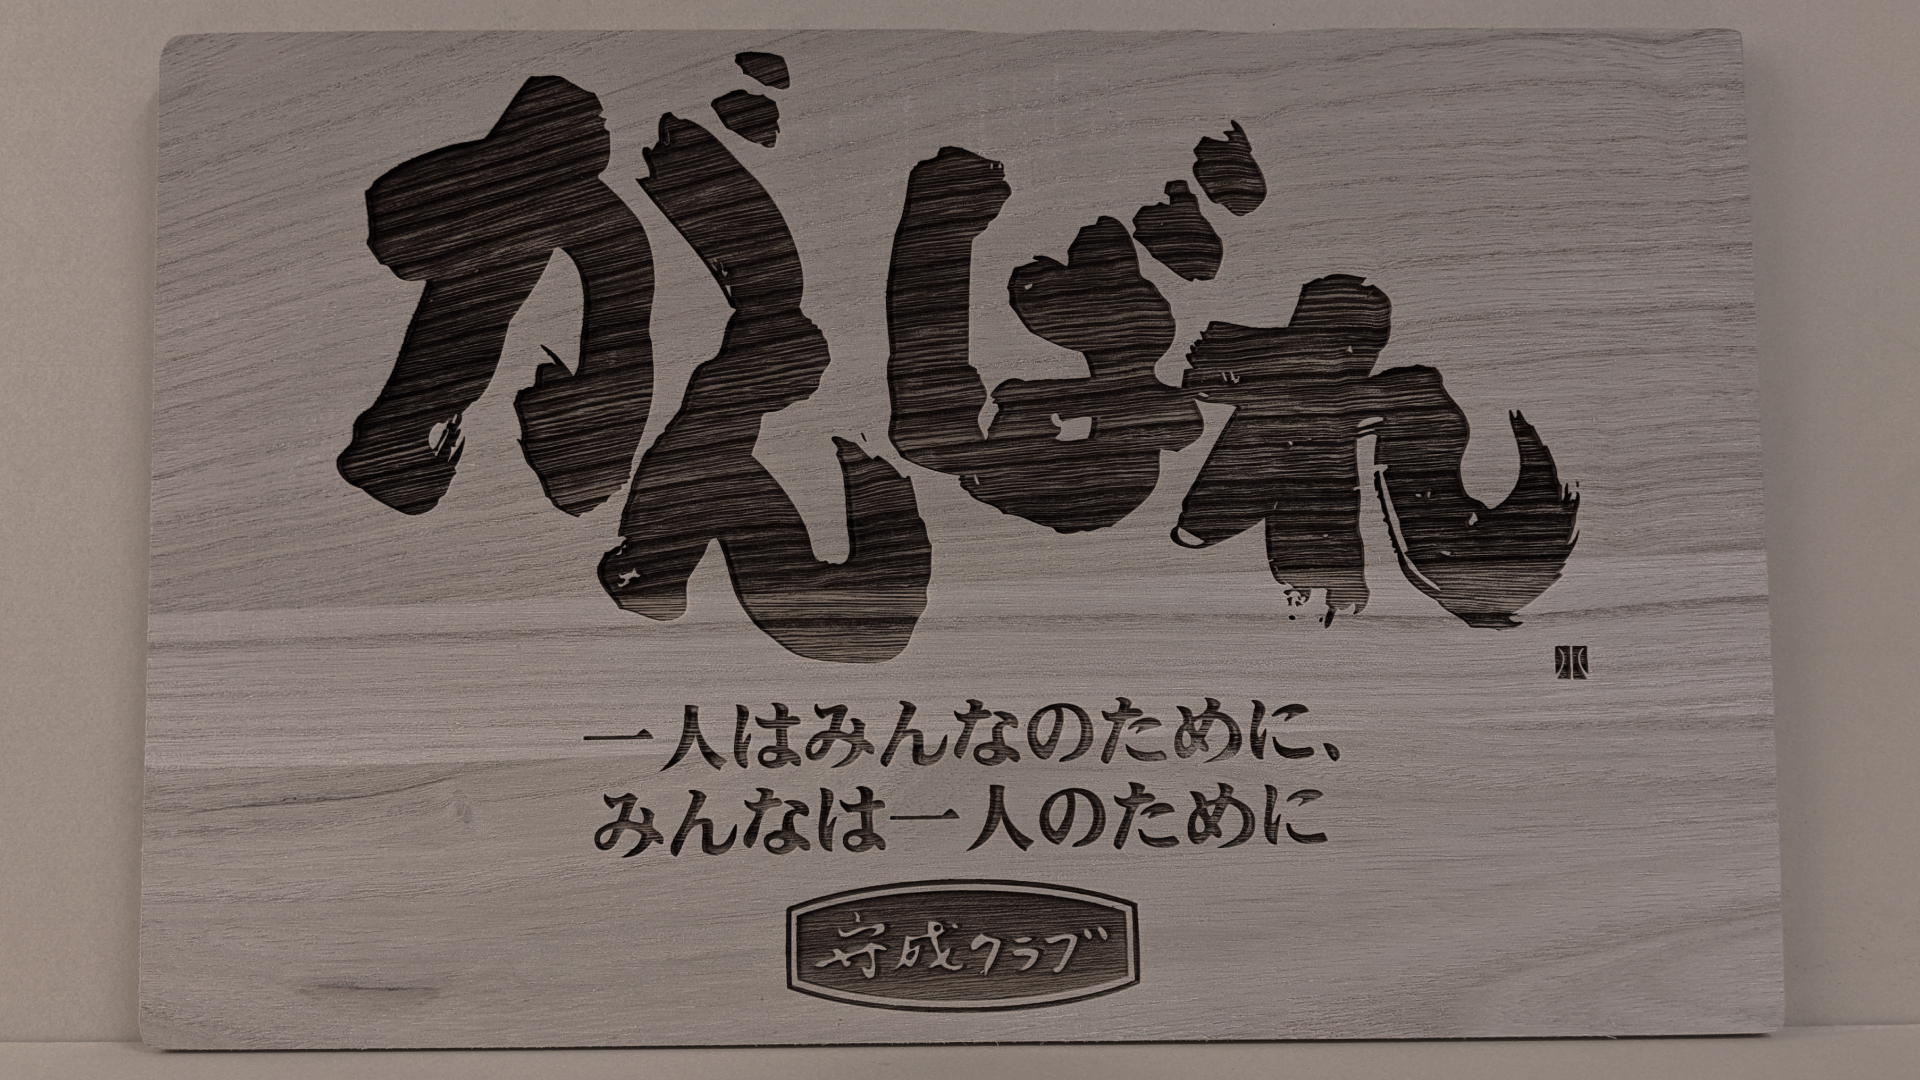 がんばれ
一人はみんなのために、
みんなは一人のために
守成クラブ